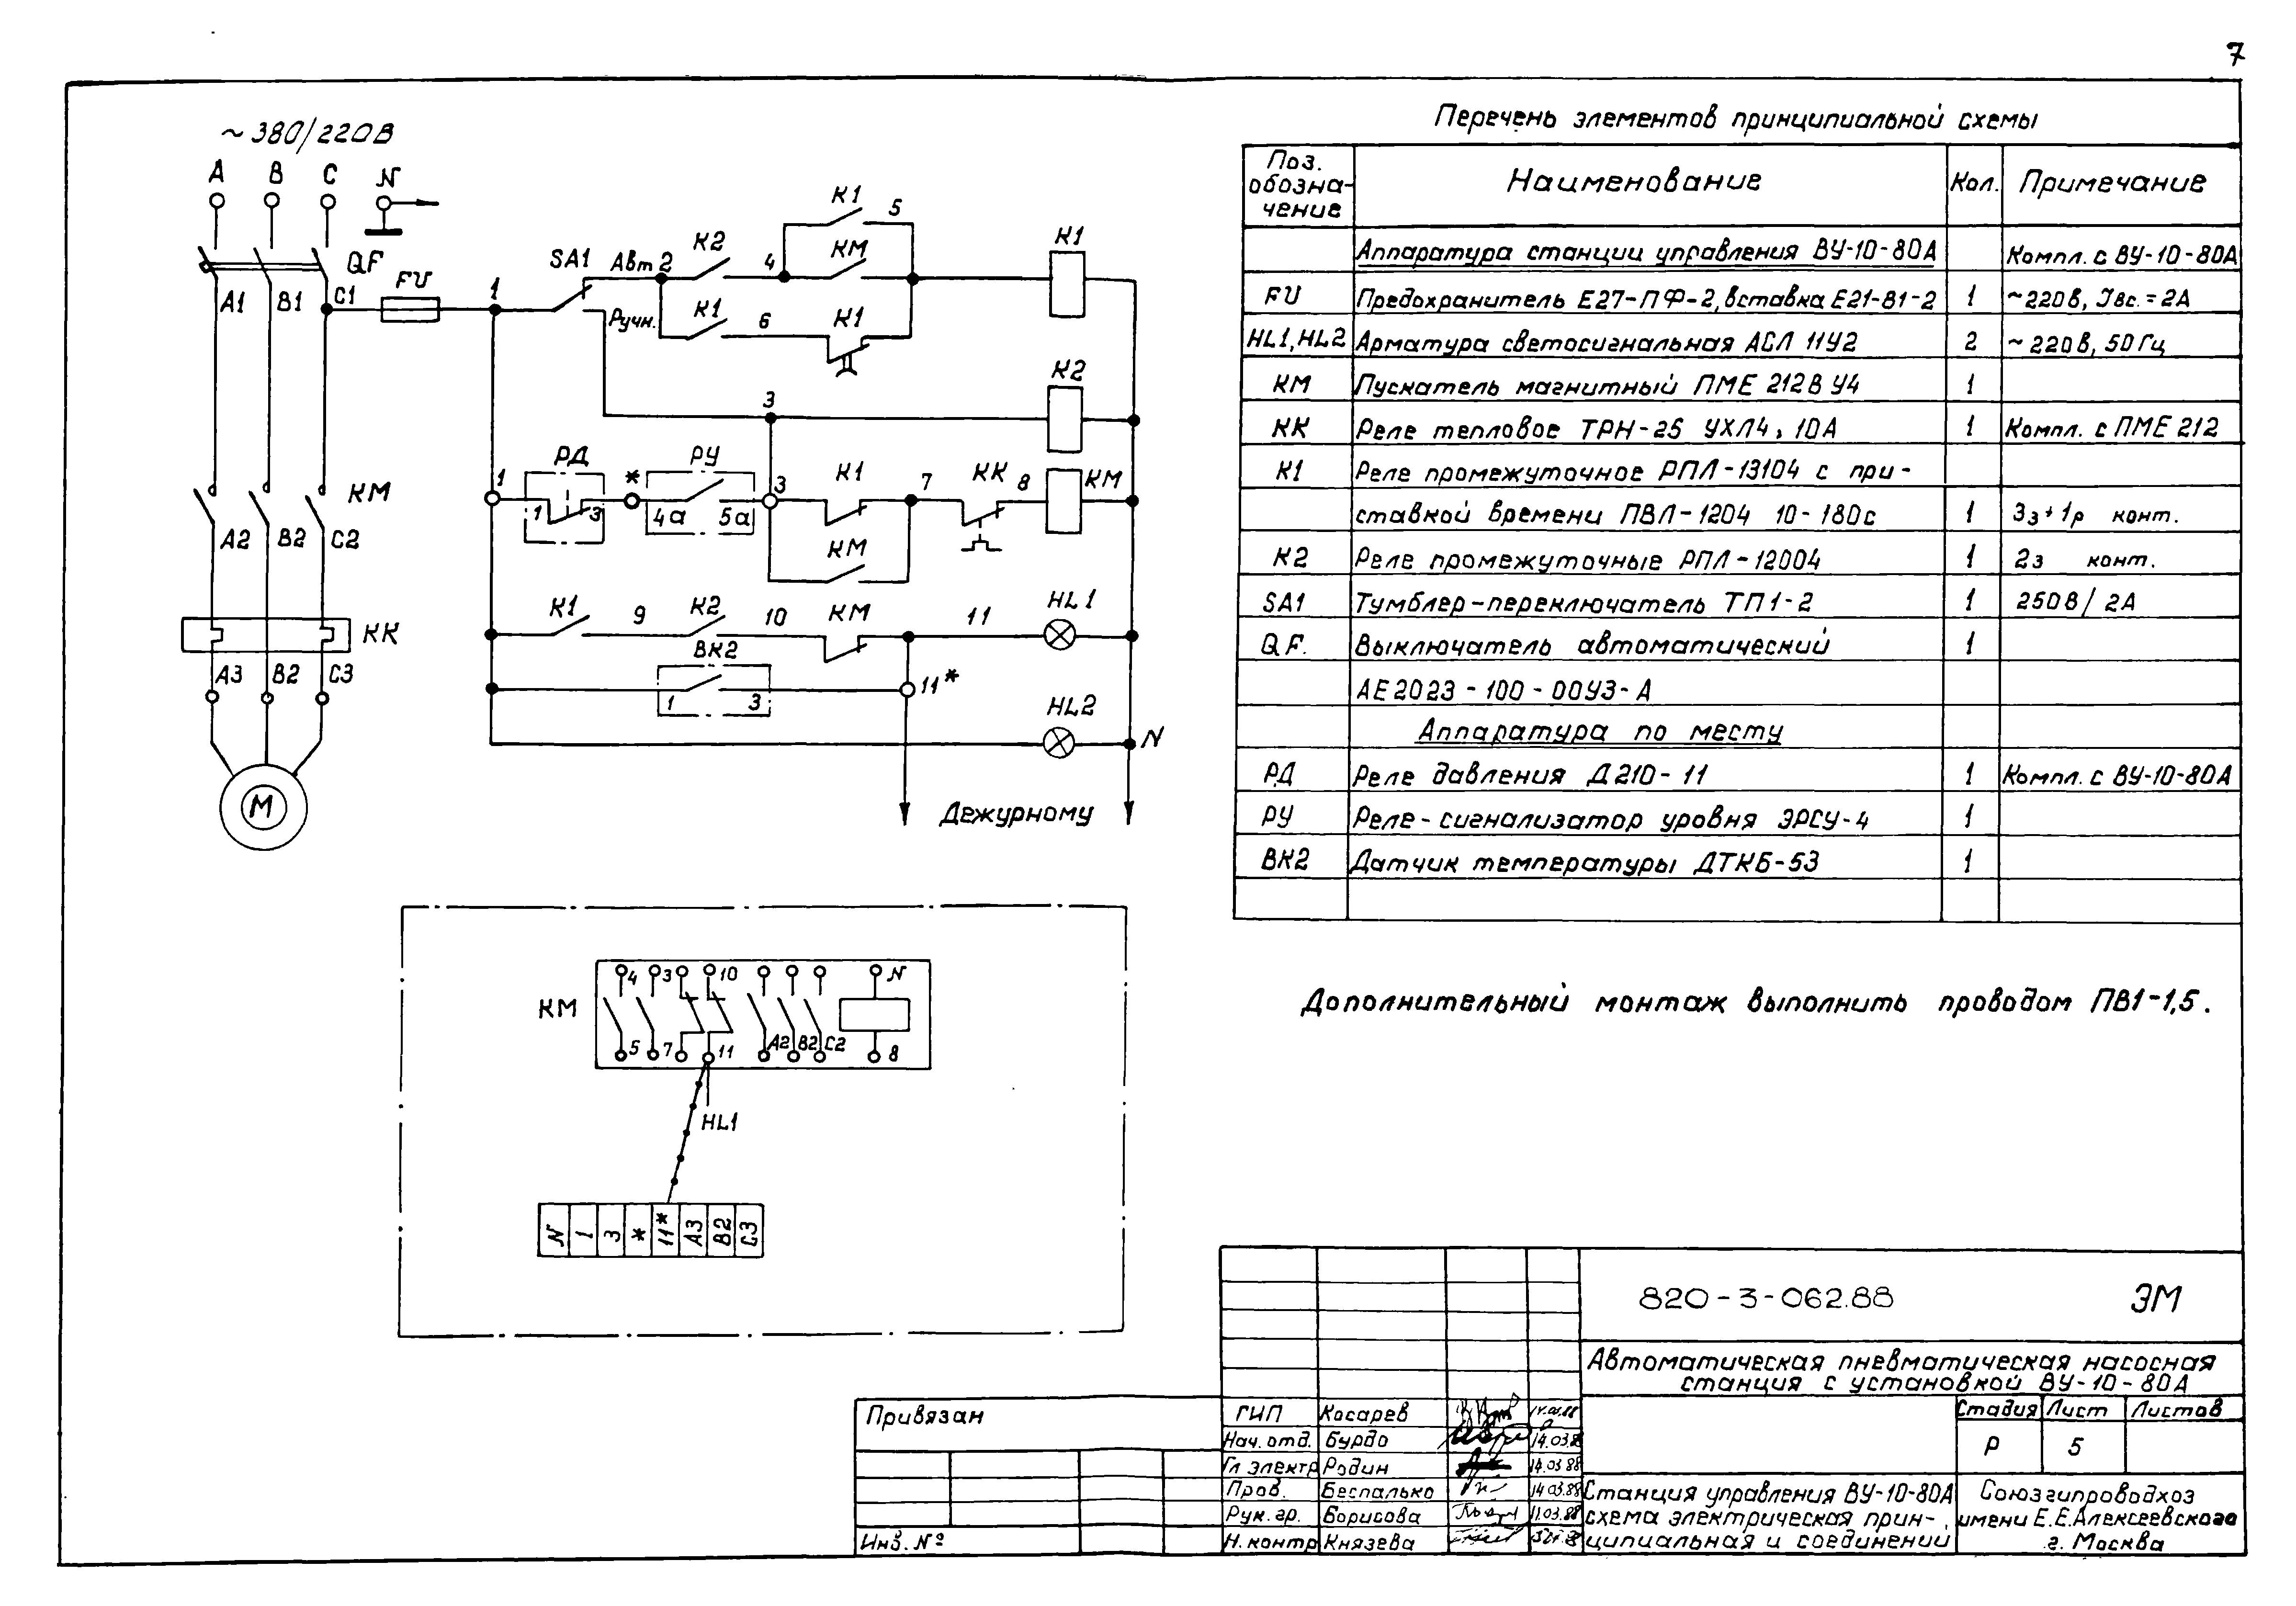 7
~380/220В
А В С N
QF
FU
А1 В1 С1
1
SA1
Авт 2
Ручн.
К2
4
К1
5
КМ
К1
6
К1
К1
3
К2
1
РД
1 3
*
РУ
4а 5а
3
К1
7
КК
8
КМ
КМ
КМ
А2 В2 С2
КК
А3 В2 С3
М
К1
9
К2
10
КМ
11
HL1
ВК2
1 3
11*
HL2
N
Дежурному
КМ
4 3 10 N
5 7 11 А2 В2 С2 8
HL1
N 1 3 * 11* А3 В2 С3
Перечень элементов принципиальной схемы
Поз. обозна-чение Наименование Кол. Примечание
Аппаратура станции управления ВУ-10-80А Компл. с ВУ-10-80А
FU Предохранитель Е27-ПФ-2, вставка Е21-В1-2 1 ~220в, Iвс.=2А
HL1, HL2 Арматура светосигнальная АСЛ 11У2 2 ~220в, 50Гц
КМ Пускатель магнитный ПМЕ 212В У4 1
КК Реле тепловое ТРН-25 УХЛ4, 10А 1 Компл. с ПМЕ 212
К1 Реле промежуточное РПЛ-13104 с при-
ставкой времени ПВЛ-1204 10-180с 1 3з+1р конт.
К2 Реле промежуточные РПЛ-12004 1 2з конт.
SA1 Тумблер-переключатель ТП1-2 1 250В/2А
QF. Выключатель автоматический 1
АЕ2023-100-00У3-А
Аппаратура по месту
РД Реле давления Д210-11 1 Компл. с ВУ-10-80А
РУ Реле-сигнализатор уровня ЭРСУ-4 1
ВК2 Датчик температуры ДТКБ-53 1
Дополнительный монтаж выполнить проводом ПВ1-1,5.
820-3-062.88 ЭМ
Автоматическая пневматическая насосная
станция с установкой ВУ-10-80А
Стадия Лист Листов
Р 5
Станция управления ВУ-10-80А
схема электрическая прин-
ципиальная и соединений
Союзгипроводхоз
имени Е.Е.Алексеевского
г. Москва
Привязан
Инв. №
ГИП Косарев
Нач. отд. Бурдо 14.03.88
Гл электр Родин 14.03.88
Пров. Беспалько 14.03.88
Рук. гр. Борисова 11.03.88
Н. контр Князева